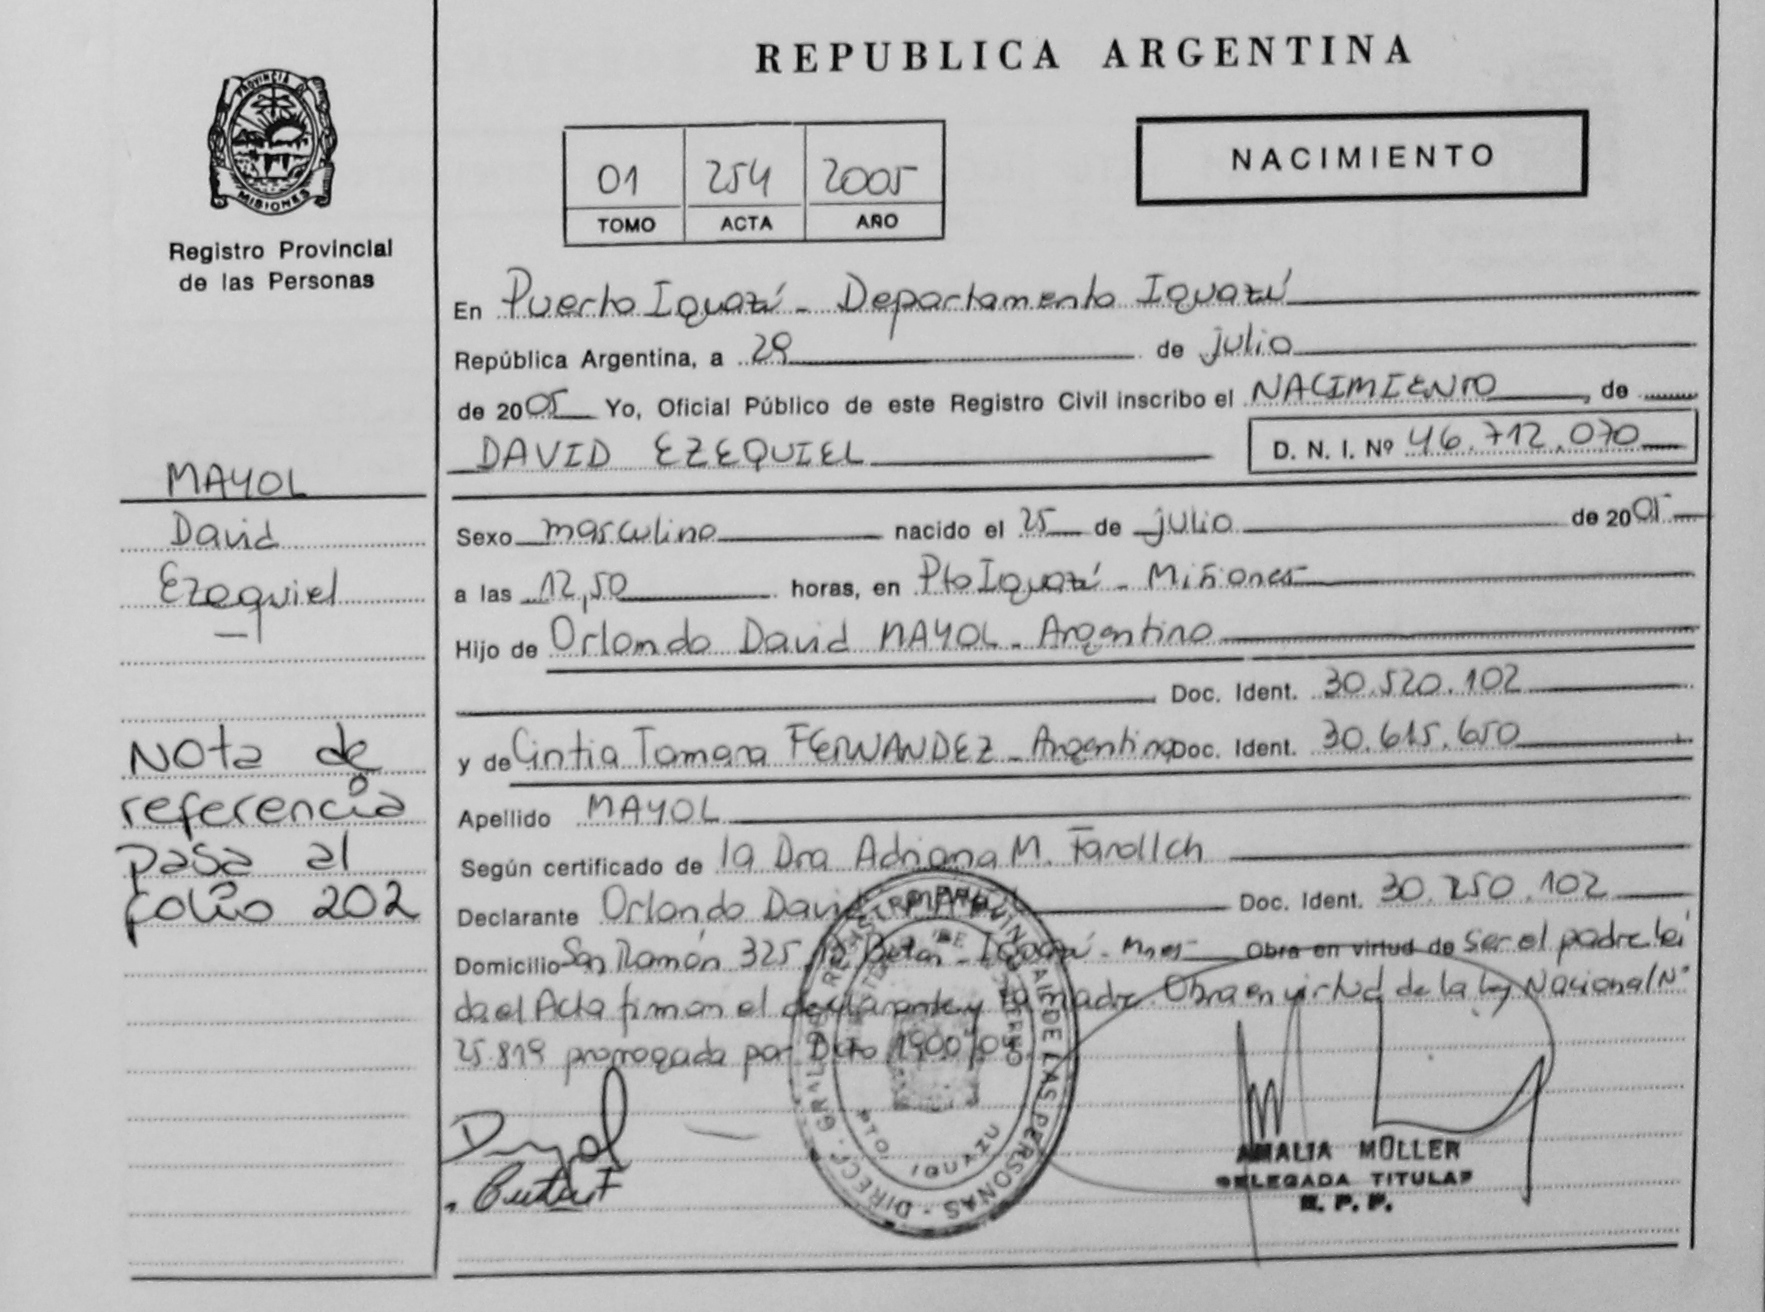 PROVINCIA DE
MISIONES
Registro Provincial
de las Personas
MAYOL
David
Ezequiel
Nota de
referencia
pasa al
folio 202
REPUBLICA ARGENTINA
01 254 2005
TOMO ACTA AÑO
NACIMIENTO
En Puerto Iguazú - Departamento Iguazú
República Argentina, a 29 de julio
de 2005 Yo, Oficial Público de este Registro Civil inscribo el NACIMIENTO, de
DAVID EZEQUIEL D. N. I. Nº 46.712.070
Sexo masculino nacido el 25 de julio de 2005
a las 12,50 horas, en Pto Iguazú - Misiones
Hijo de Orlando David MAYOL - Argentino
Doc. Ident. 30.520.102
y de Cintia Tamara FERNANDEZ - Argentina Doc. Ident. 30.615.650
Apellido MAYOL
Según certificado de la Dra Adriana M.
Declarante Orlando David MAYOL Doc. Ident. 30.250.102
Domicilio San Ramón 325 Iguazú - Mnes - Obra en virtud de ser el padre lei
da el Acta firman el declarante y la madre. Obra en virtud de la Ley Nacional Nº
25.819 prorrogada por Dcto 1900/04
DIRECC. GRAL DE REGISTRO PROVINCIAL DE LAS PERSONAS
PTO. IGUAZU
AMALIA MULLER
DELEGADA TITULAR
R. P. P.